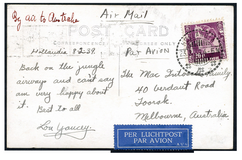 By air to Australia
Air Mail
POST CARD
Par Avion
Hollandia 8.2.38.
Back on the jungle
airways and cant say
am very happy about
it. Best to all
Lou Yancey
The Mac
40 Verdant Road
Toorak
Melbourne, Australia
PER LUCHTPOST
PAR AVION